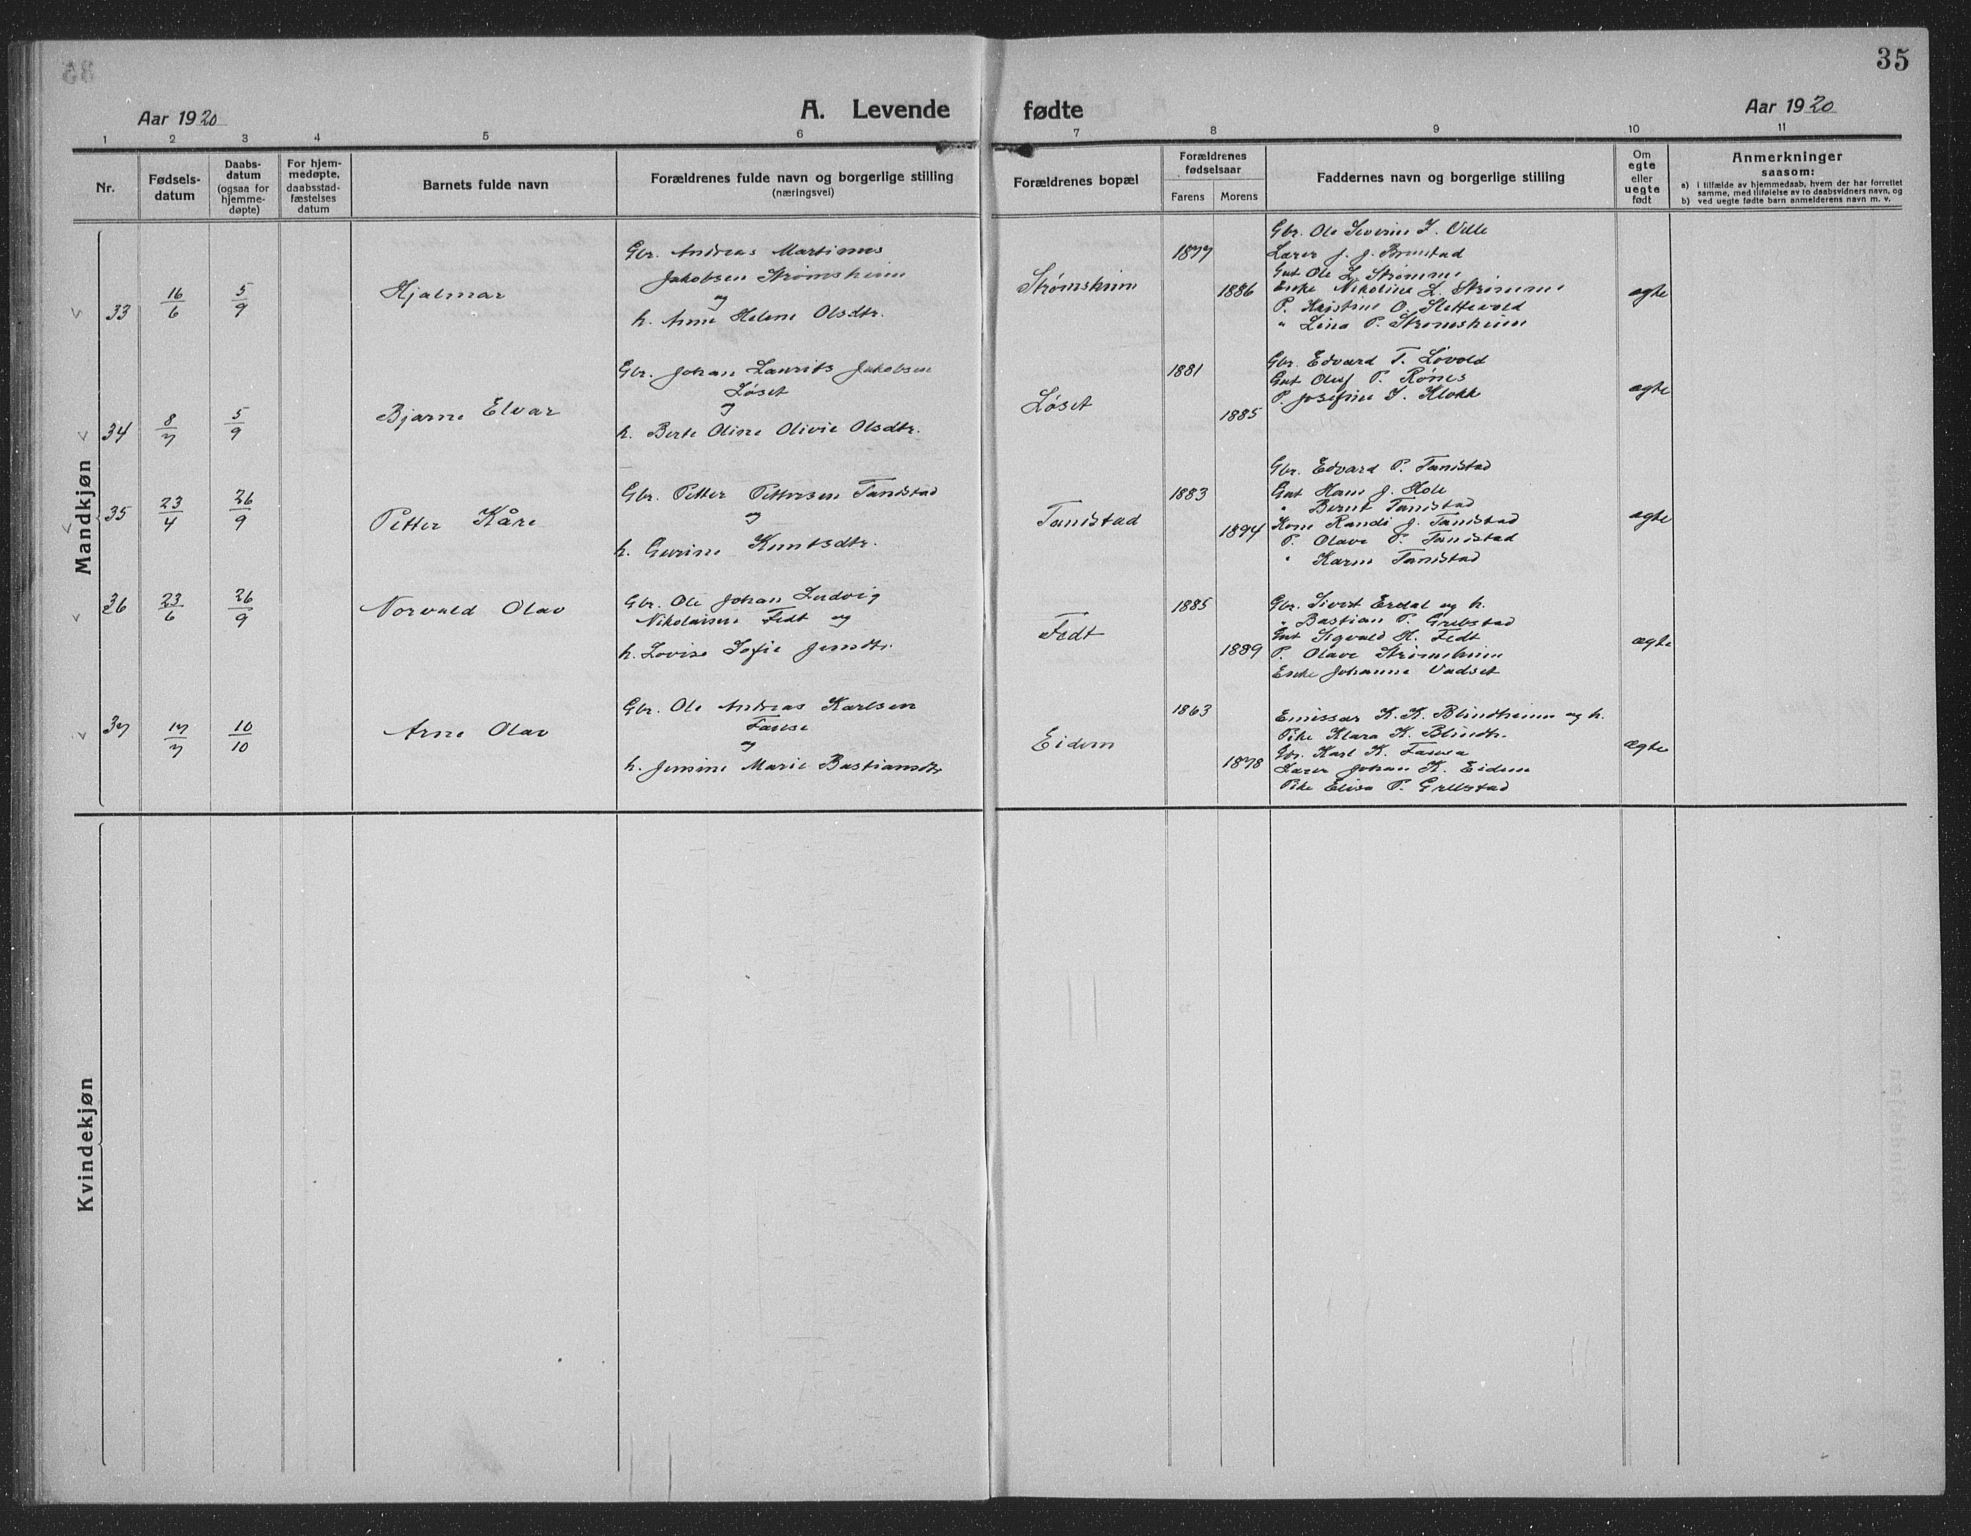 35
Aar 1920
A. Levende fødte
Aar 1920
1 2 3 4 5 6 7 8 9 10 11
Nr.
Fødsels-
datum
Daabs-
datum
(ogsaa for
hjemme-
døpte)
For hjem-
medøpte,
daabsstad-
fæstelses
datum
Barnets fulde navn
Forældrenes fulde navn og borgerlige stilling
(næringsvei)
Forældrenes bopæl
Forældrenes
fødselsaar
Farens Morens
Faddernes navn og borgerlige stilling
Om
egte
eller
uegte
født
Anmerkninger
saasom:
a) i tilfælde av hjemmedaab, hvem der har forrettet
samme, med tilføielse av to daabsvidners navn, og
b) ved uegte fødte barn anmelderens navn m. v.
Mandkjøn
33
16/6
5/9
Hjalmar
Gbr. Andreas Martinus
Jakobsen Strømsheim
og
h. Anne Helene Olsdtr.
Strømsheim
1877
1886
Gbr. Ole Severin I. Ville
Lærer J. J. Brunstad
Gut Ole L. Strømme
Enke Nikoline L. Strømme
P. Kristine O. Slettevold
" Lina P. Strømsheim
ægte
34
8/7
5/9
Bjarne Elvar
Gbr. Johan Laurits Jakobsen
Løset
og
h. Berte Oline Olivie Olsdtr.
Løset
1881
1885
Gbr. Edvard T. Løvold
Gut Oluf P. Rønes
P. Josefine I. Klokk
ægte
35
23/4
26/9
Petter Kåre
Gbr. Petter Pettersen Tandstad
og
h. Gurine Knutsdtr.
Tandstad
1883
1894
Gbr. Edvard P. Tandstad
Gut Hans J. Hole
" Bernt Tandstad
Kone Randi J. Tandstad
P. Olave P. Tandstad
" Karen Tandstad
ægte
36
23/6
26/9
Norvald Olav
Gbr. Ole Johan Ludvig
Nikolaisen Fedt og
h. Lovise Sofie Jensdtr.
Fedt
1885
1889
Gbr. Sivert Erdal og h.
" Bastian P. Grebstad
Gut Sigvald H. Fedt
P. Olave Strømsheim
Enke Johanne Vadset
ægte
37
17/7
10/10
Arne Olav
Gbr. Ole Andreas Karlsen
og
h. Jensine Marie Bastiansdtr
Eidem
1863
1878
Emissær K. K. Blindheim og h.
Pike Klara K. Blindh.
Gbr. Karl K.
Lærer Johan K. Eidem
Pike Elisa P. Grebstad
ægte
Kvindekjøn